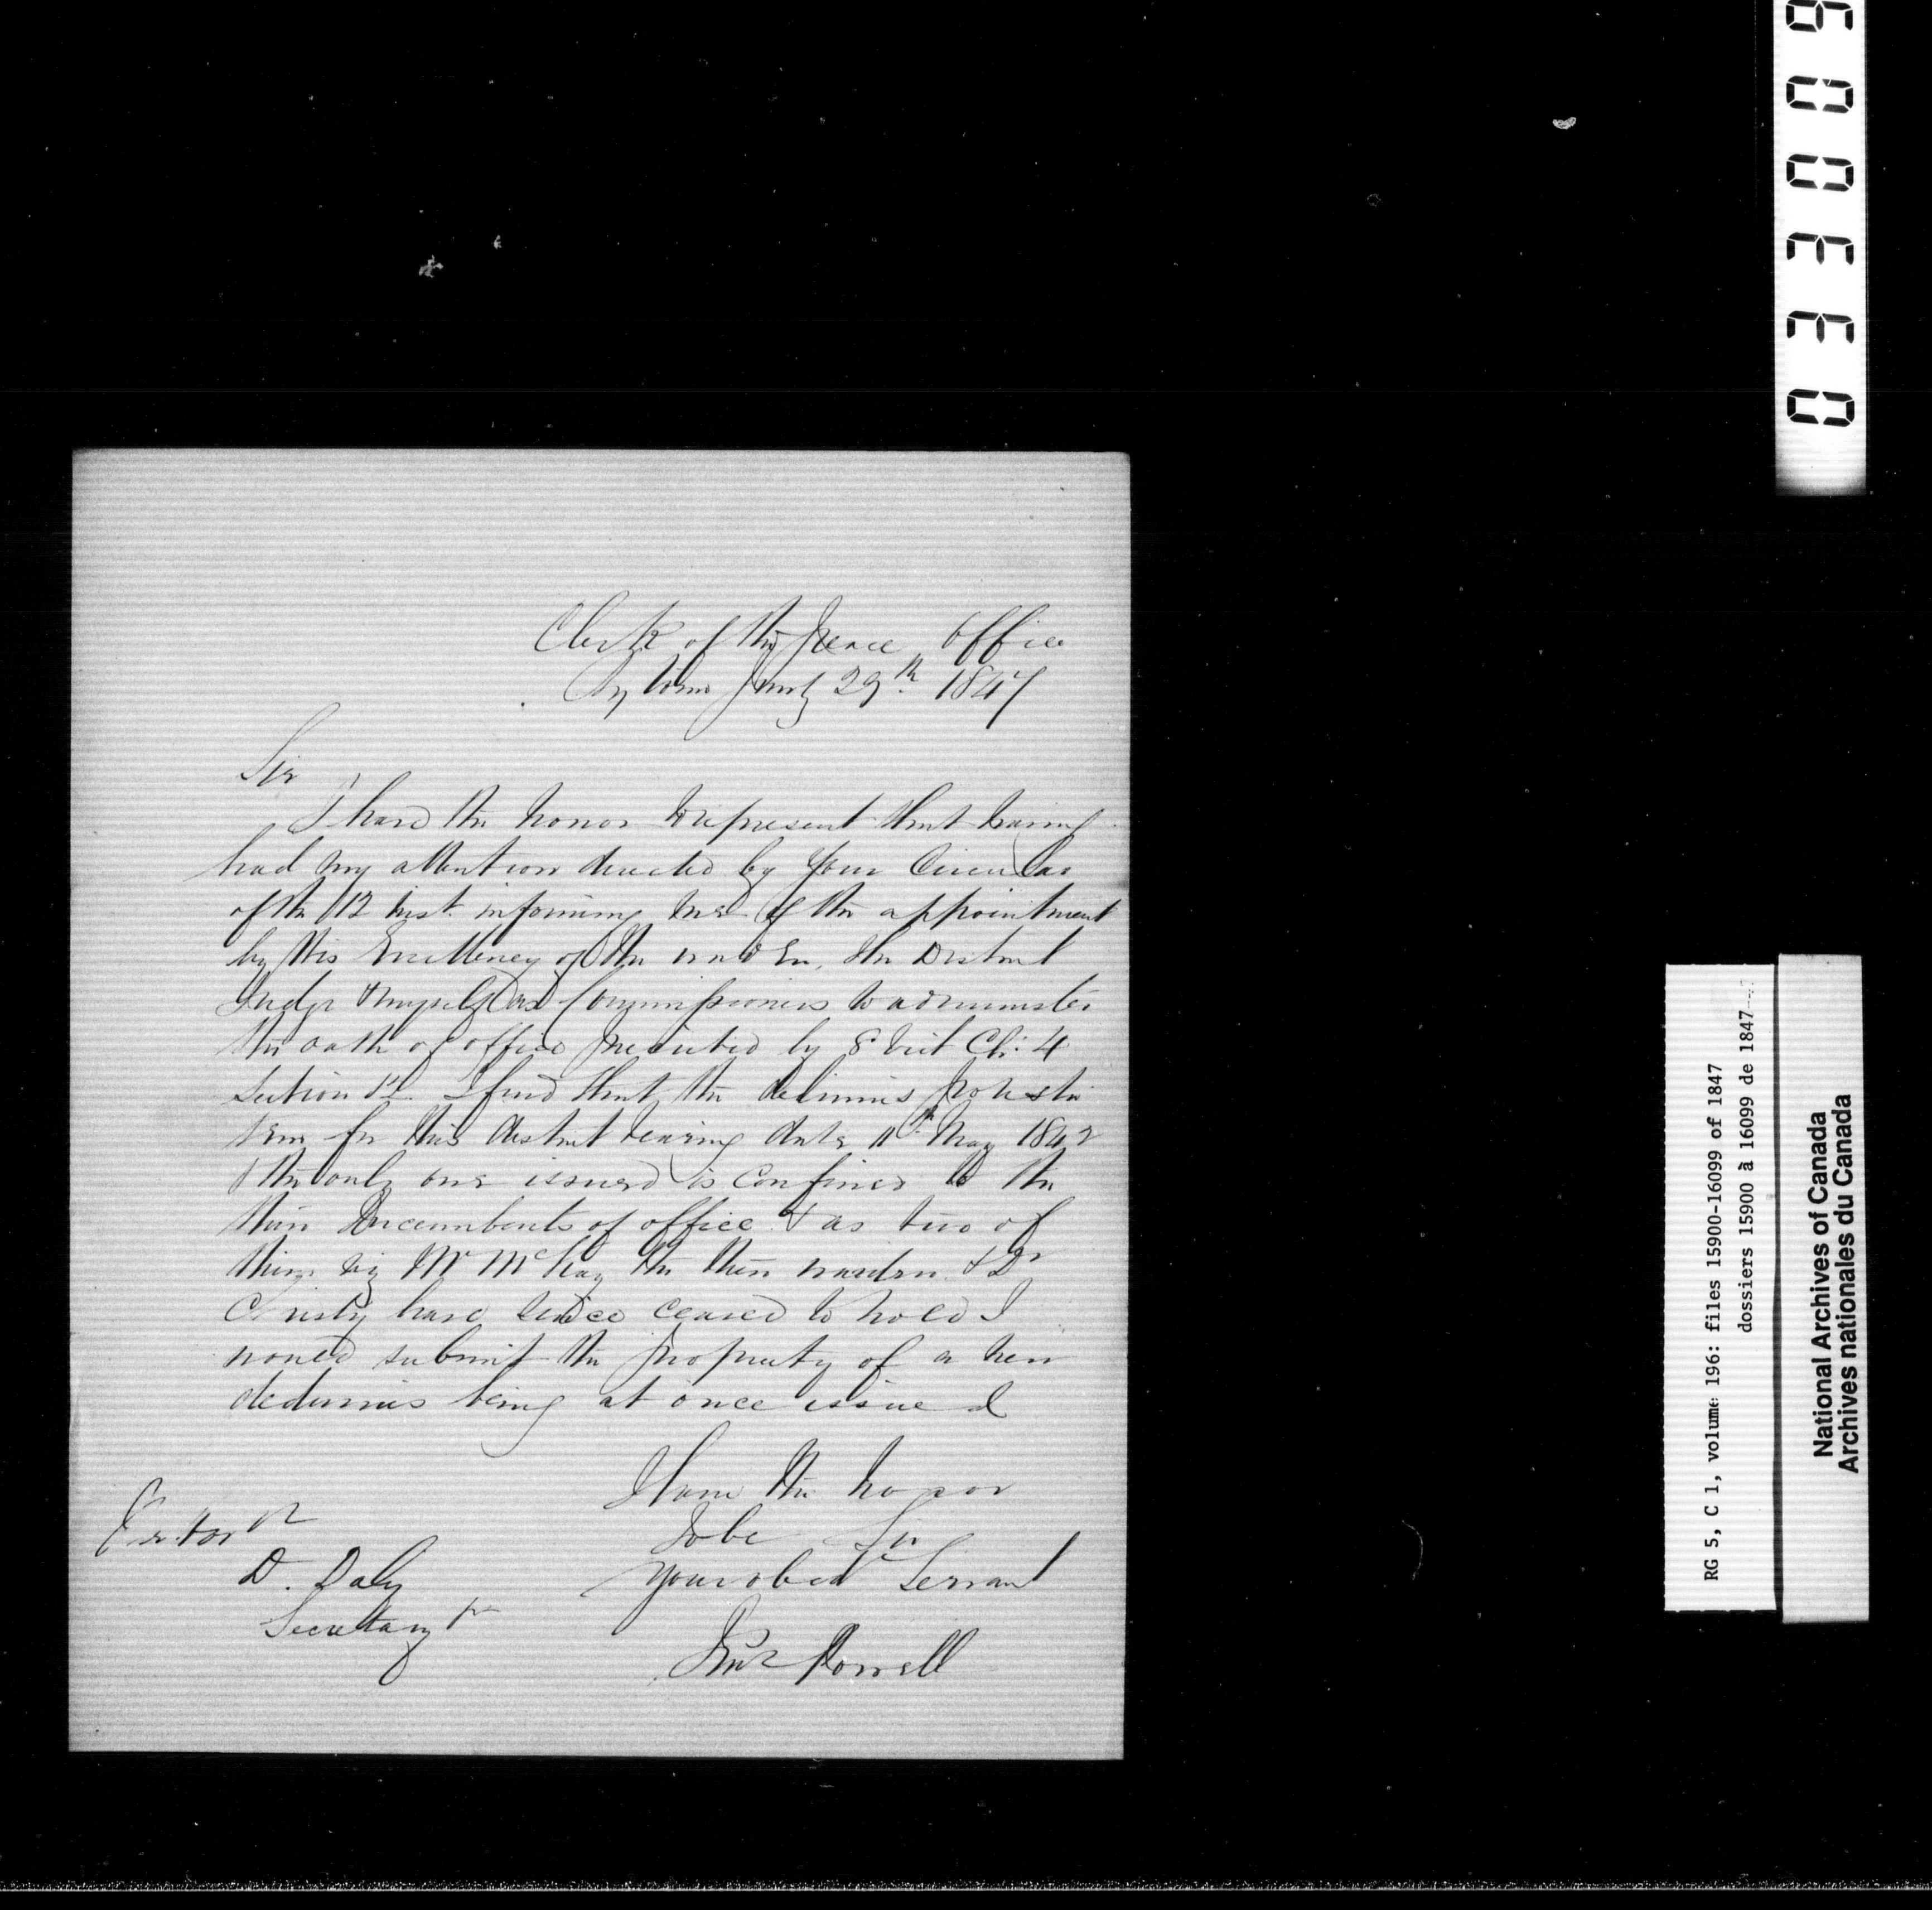 Clerk of the Peace Office
Bytown Jany 29th 1847
Sir
I have the honor to represent that having
had my attention directed by your Circular
of the 12 inst. informing me of the appointment
by His Excellency of the warden, the District
Judge & myself as Commissioners to administer
the oath of office by 8 Vict Ch: 4
Section 12. I find that the dedimus potesta
tem for this district bearing date 11th May 1842
& the only one issued is confined to the
then Incumbents of office & as two of
them viz Mr McKay the then warden & Dr
Christy have since ceased to hold I
would submit the propriety of a new
dedimus being at once issued
I have the honor
to be Sir
your obedt Servant
Powell
D. Daly
Secretary
RG 5, C 1, volume 196: files 15900-16099 of 1847
dossiers 15900 à 16099 de 1847
National Archives of Canada
Archives nationales du Canada